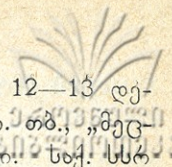 12—13 დე-
. თბ., „მეც-
. საქ. სსრ